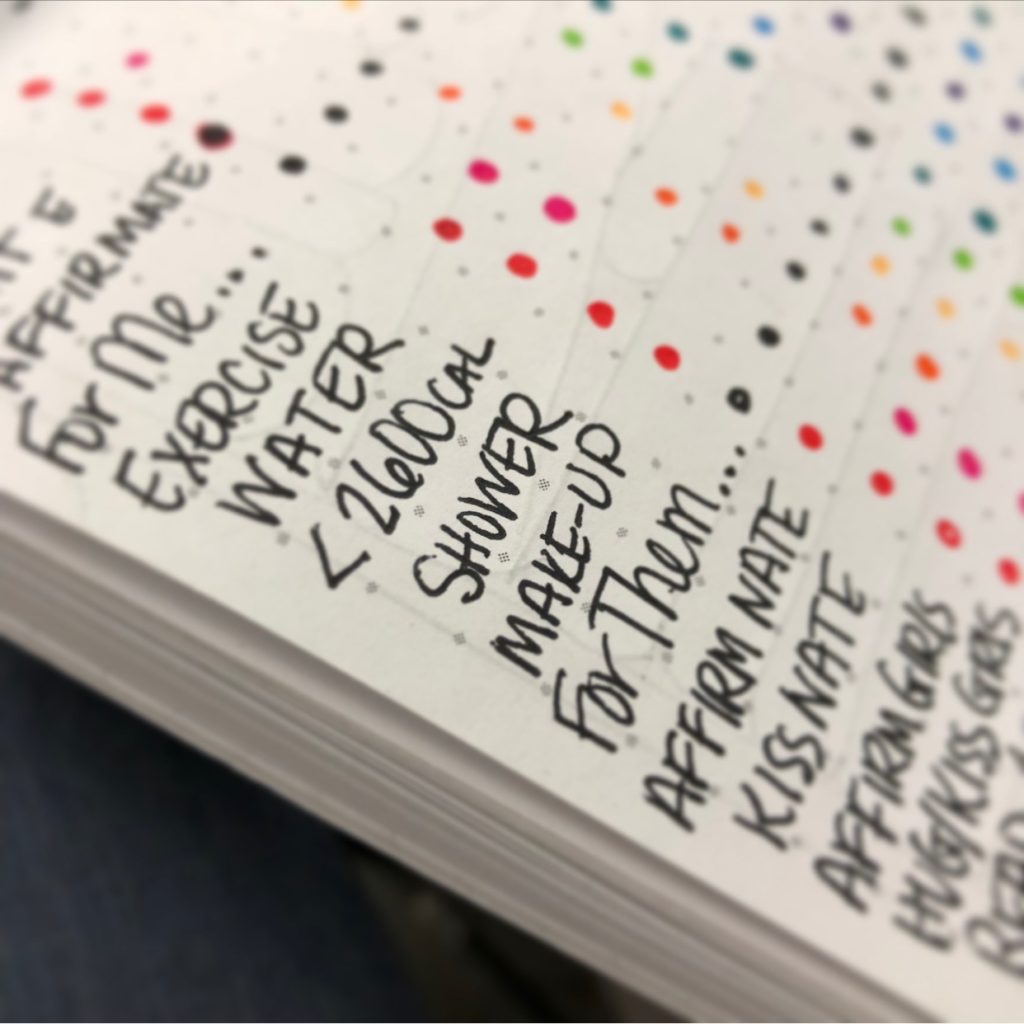 AFFIRMATE
For Me...
EXERCISE
WATER
< 2600 CAL
SHOWER
MAKE-UP
For Them...
AFFIRM NATE
KISS NATE
AFFIRM GIRLS
HUG/KISS GIRLS
READ